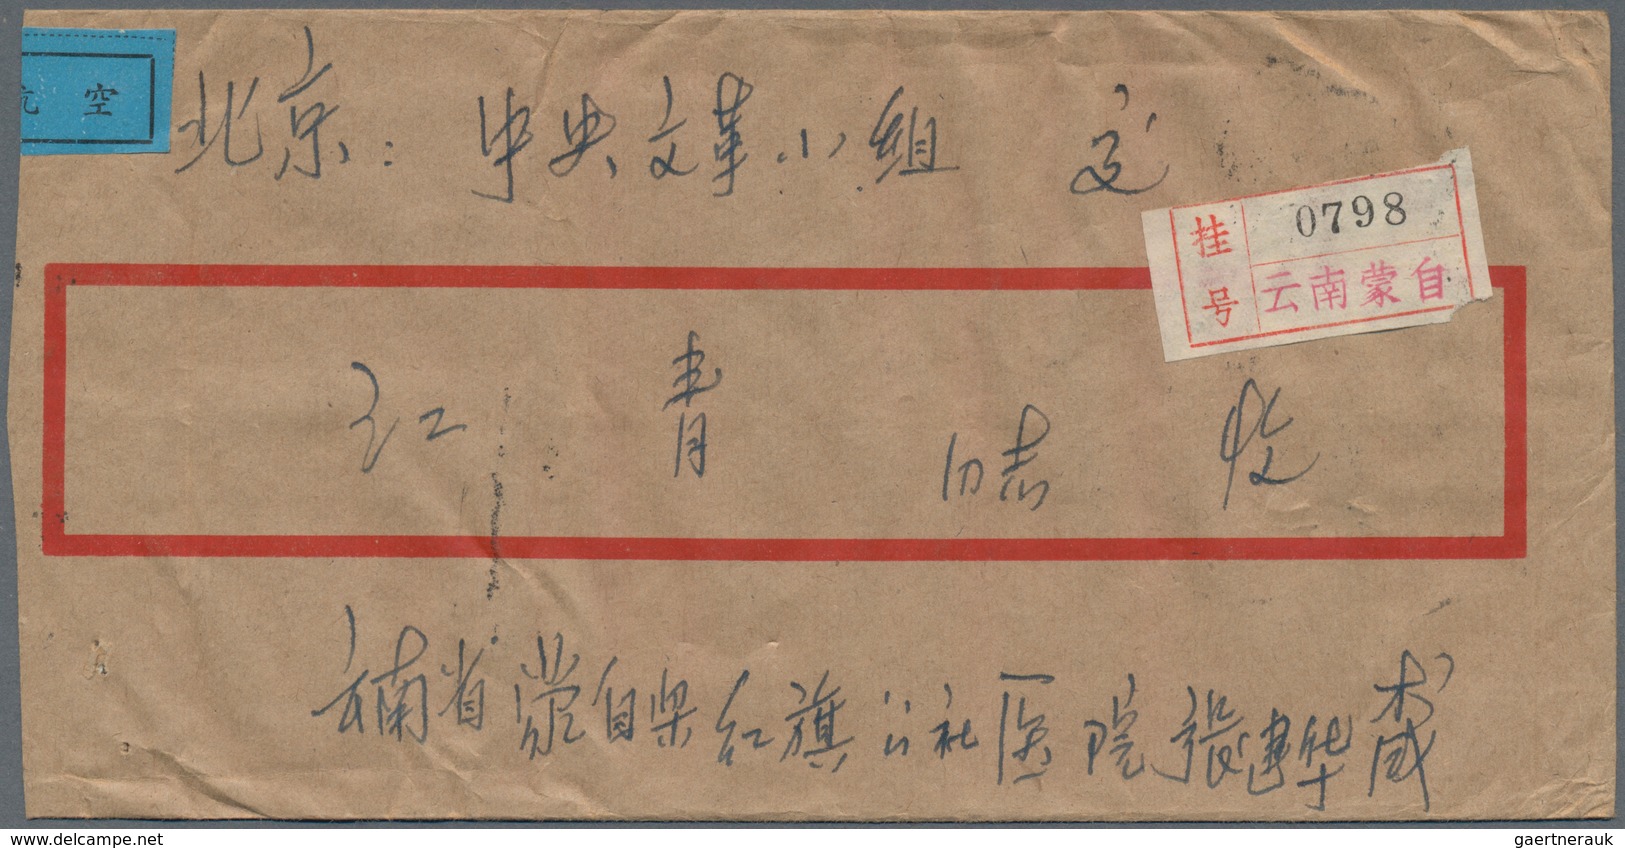 航空
北京：中央文革小组 交
挂号
0798
云南蒙自
江青同志收
云南省蒙自县红旗公社医院張建华
delcampe.net
gaertnerauk